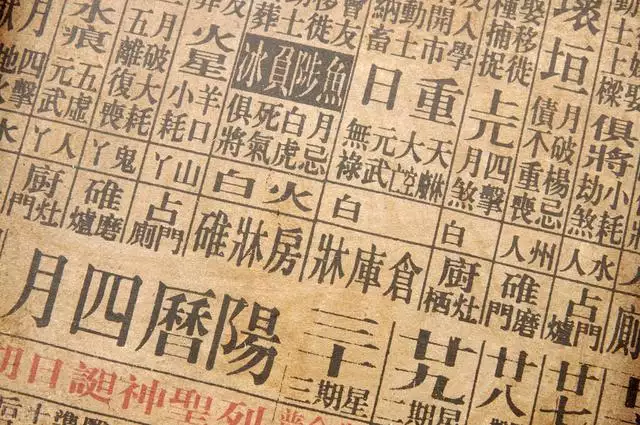 壞垣
娶移徙
種捕捉
入學
開市
動土
納畜
俱將
小耗
劫煞
月破楊忌
債不重喪
上元
四擊
月煞
重日
天
大
元武
無祿
魚陟負冰
月忌
白虎
死氣
俱將
火星
羊口
小耗
月破大耗
五離復喪
水痕
五虛
元武
月
四擊
水人
州人
白
白
火白
山丫
鬼丫
人丫
水
廁
占門爐
碓磨門
廚灶栖
倉庫牀
房牀碓
占門廁
碓磨爐
廚灶門
廿七
廿八
廿九
三十
星期三
陽曆四月
列聖神誕日期